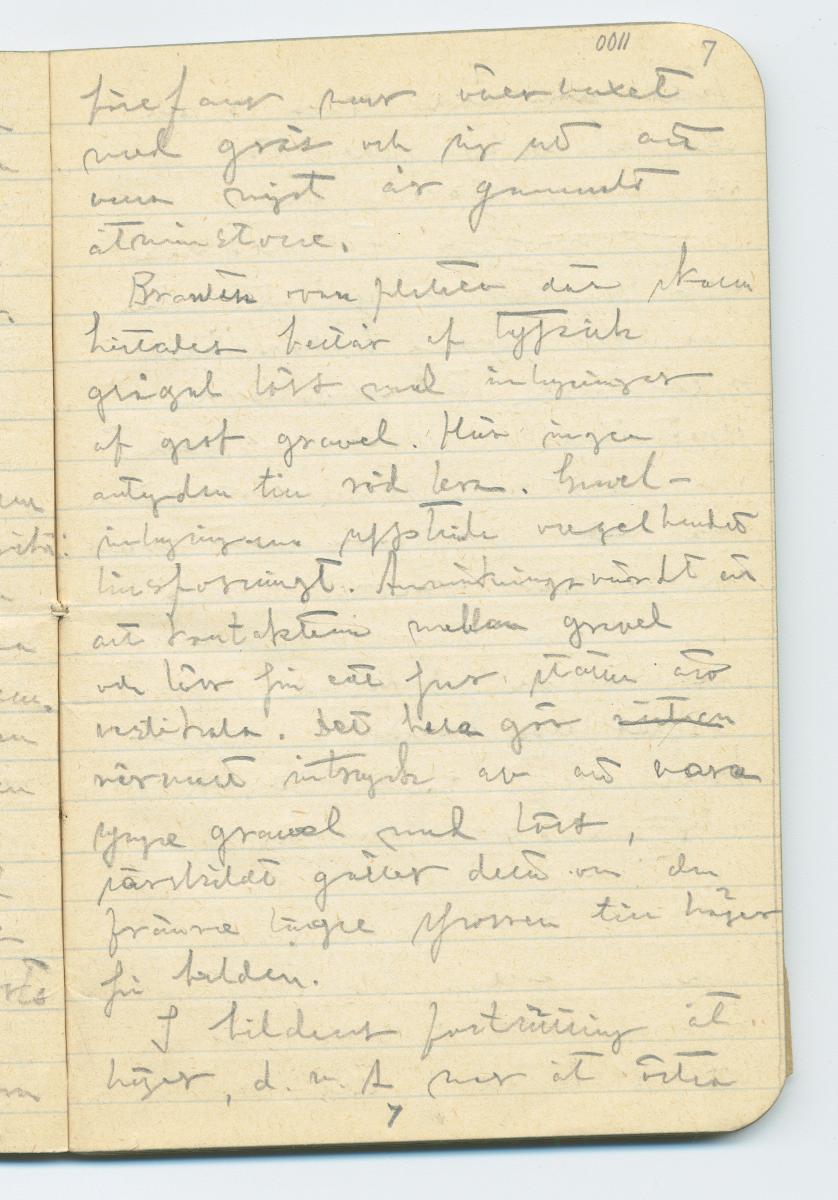 0011 7
före fanns mer överväxet
med gräs och ser ut att
vara mycket är gammalt
åtminstone.
Branten ovan platån där
hittades består af typisk
grågul löss med inlagringar
af grof gravel. Här ingen
antydan till röd lera. Gravel-
inlagringarna uppträda oregelbundet
linsformigt. Anmärkningsvärdt är
att kontakterna mellan gravel
och löss på ett par ställen äro
vertikala. Det hela gör
närmast intryck av att vara
yngre gravel med löss,
särskildt gäller detta om den
främre lägre till höger
på bilden.
I bildens fortsättning åt
höger, d. v. s. mer åt öster
7